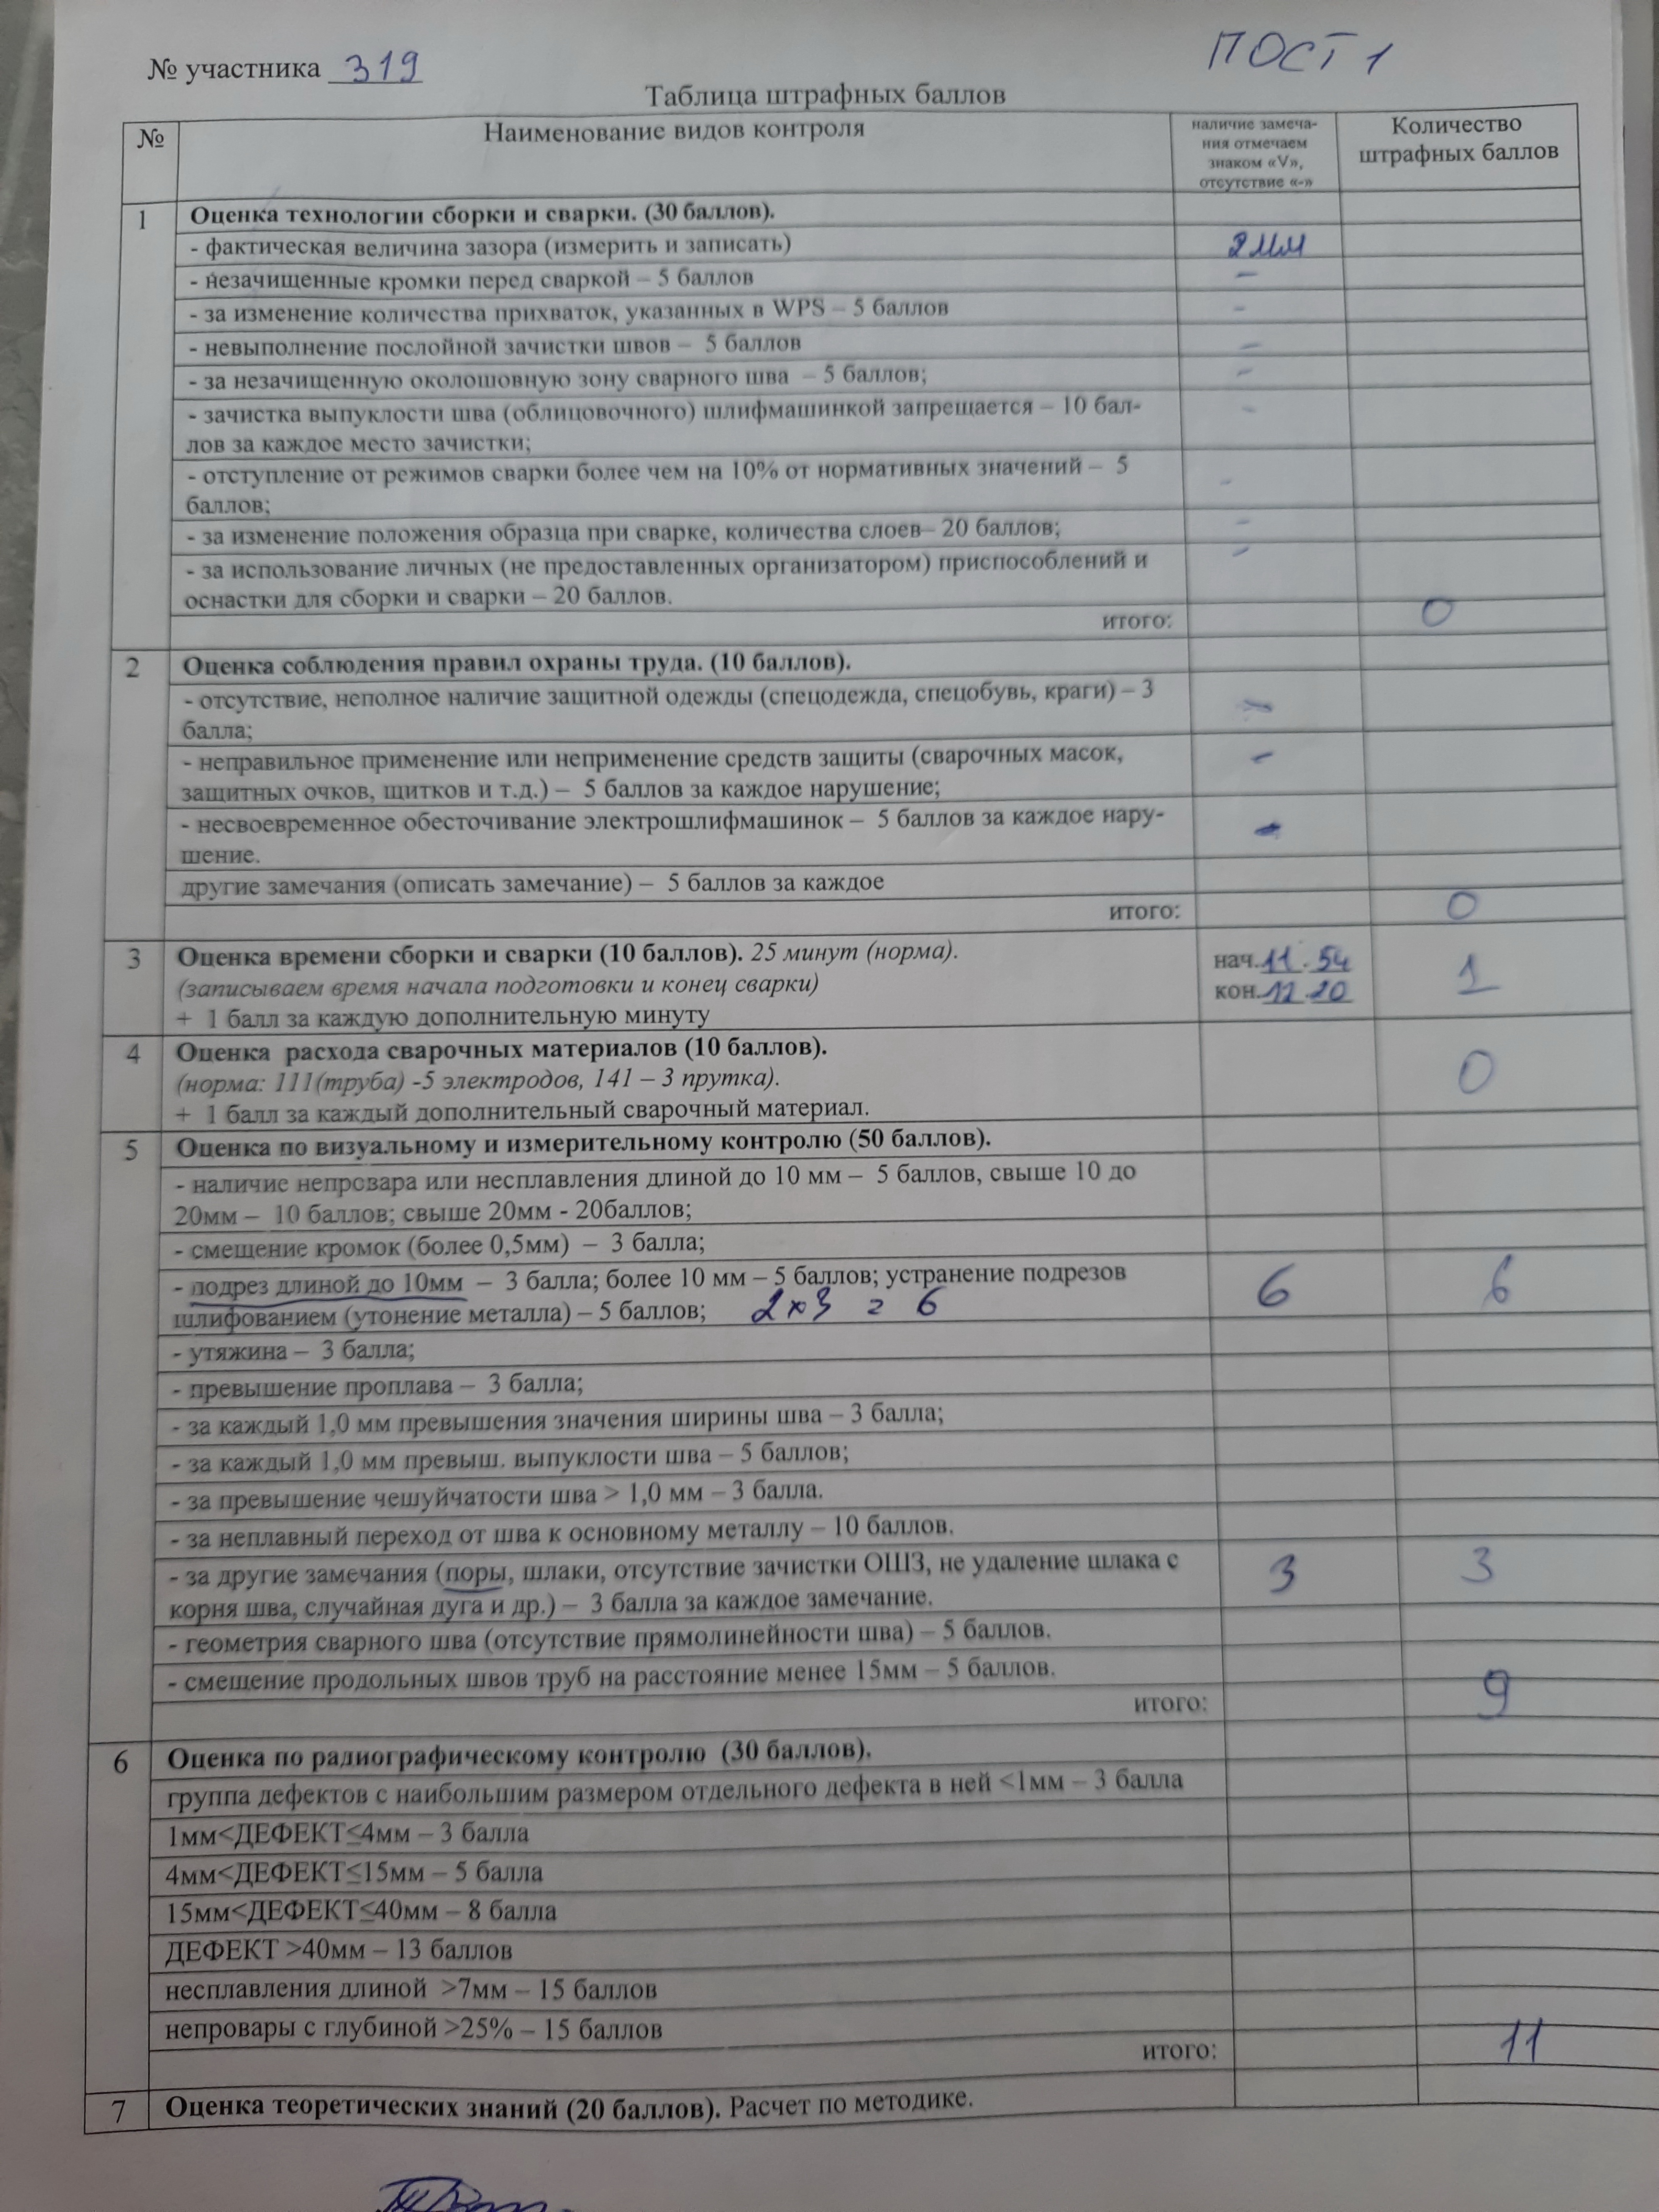 № участника 319
ПОСТ 1
Таблица штрафных баллов
№
Наименование видов контроля
наличие замеча-
ния отмечаем
знаком «V»,
отсутствие «-»
Количество
штрафных баллов
1
Оценка технологии сборки и сварки. (30 баллов).
- фактическая величина зазора (измерить и записать)
2 мм
- незачищенные кромки перед сваркой – 5 баллов
–
- за изменение количества прихваток, указанных в WPS – 5 баллов
–
- невыполнение послойной зачистки швов – 5 баллов
–
- за незачищенную околошовную зону сварного шва – 5 баллов;
–
- зачистка выпуклости шва (облицовочного) шлифмашинкой запрещается – 10 бал-
лов за каждое место зачистки;
–
- отступление от режимов сварки более чем на 10% от нормативных значений – 5
баллов;
–
- за изменение положения образца при сварке, количества слоев– 20 баллов;
–
- за использование личных (не предоставленных организатором) приспособлений и
оснастки для сборки и сварки – 20 баллов.
–
итого:
0
2
Оценка соблюдения правил охраны труда. (10 баллов).
- отсутствие, неполное наличие защитной одежды (спецодежда, спецобувь, краги) – 3
балла;
–
- неправильное применение или неприменение средств защиты (сварочных масок,
защитных очков, щитков и т.д.) – 5 баллов за каждое нарушение;
–
- несвоевременное обесточивание электрошлифмашинок – 5 баллов за каждое нару-
шение.
–
другие замечания (описать замечание) – 5 баллов за каждое
итого:
0
3
Оценка времени сборки и сварки (10 баллов). 25 минут (норма).
(записываем время начала подготовки и конец сварки)
+ 1 балл за каждую дополнительную минуту
нач. 11 . 54
кон. 12 . 20
1
4
Оценка расхода сварочных материалов (10 баллов).
(норма: 111(труба) -5 электродов, 141 – 3 прутка).
+ 1 балл за каждый дополнительный сварочный материал.
0
5
Оценка по визуальному и измерительному контролю (50 баллов).
- наличие непровара или несплавления длиной до 10 мм – 5 баллов, свыше 10 до
20мм – 10 баллов; свыше 20мм - 20баллов;
- смещение кромок (более 0,5мм) – 3 балла;
- подрез длиной до 10мм – 3 балла; более 10 мм – 5 баллов; устранение подрезов
шлифованием (утонение металла) – 5 баллов; 2×3 = 6
6
6
- утяжина – 3 балла;
- превышение проплава – 3 балла;
- за каждый 1,0 мм превышения значения ширины шва – 3 балла;
- за каждый 1,0 мм превыш. выпуклости шва – 5 баллов;
- за превышение чешуйчатости шва > 1,0 мм – 3 балла.
- за неплавный переход от шва к основному металлу – 10 баллов.
- за другие замечания (поры, шлаки, отсутствие зачистки ОШЗ, не удаление шлака с
корня шва, случайная дуга и др.) – 3 балла за каждое замечание.
3
3
- геометрия сварного шва (отсутствие прямолинейности шва) – 5 баллов.
- смещение продольных швов труб на расстояние менее 15мм – 5 баллов.
итого:
9
6
Оценка по радиографическому контролю (30 баллов).
группа дефектов с наибольшим размером отдельного дефекта в ней <1мм – 3 балла
1мм<ДЕФЕКТ≤4мм – 3 балла
4мм<ДЕФЕКТ≤15мм – 5 балла
15мм<ДЕФЕКТ≤40мм – 8 балла
ДЕФЕКТ >40мм – 13 баллов
несплавления длиной >7мм – 15 баллов
непровары с глубиной >25% – 15 баллов
итого:
11
7
Оценка теоретических знаний (20 баллов). Расчет по методике.